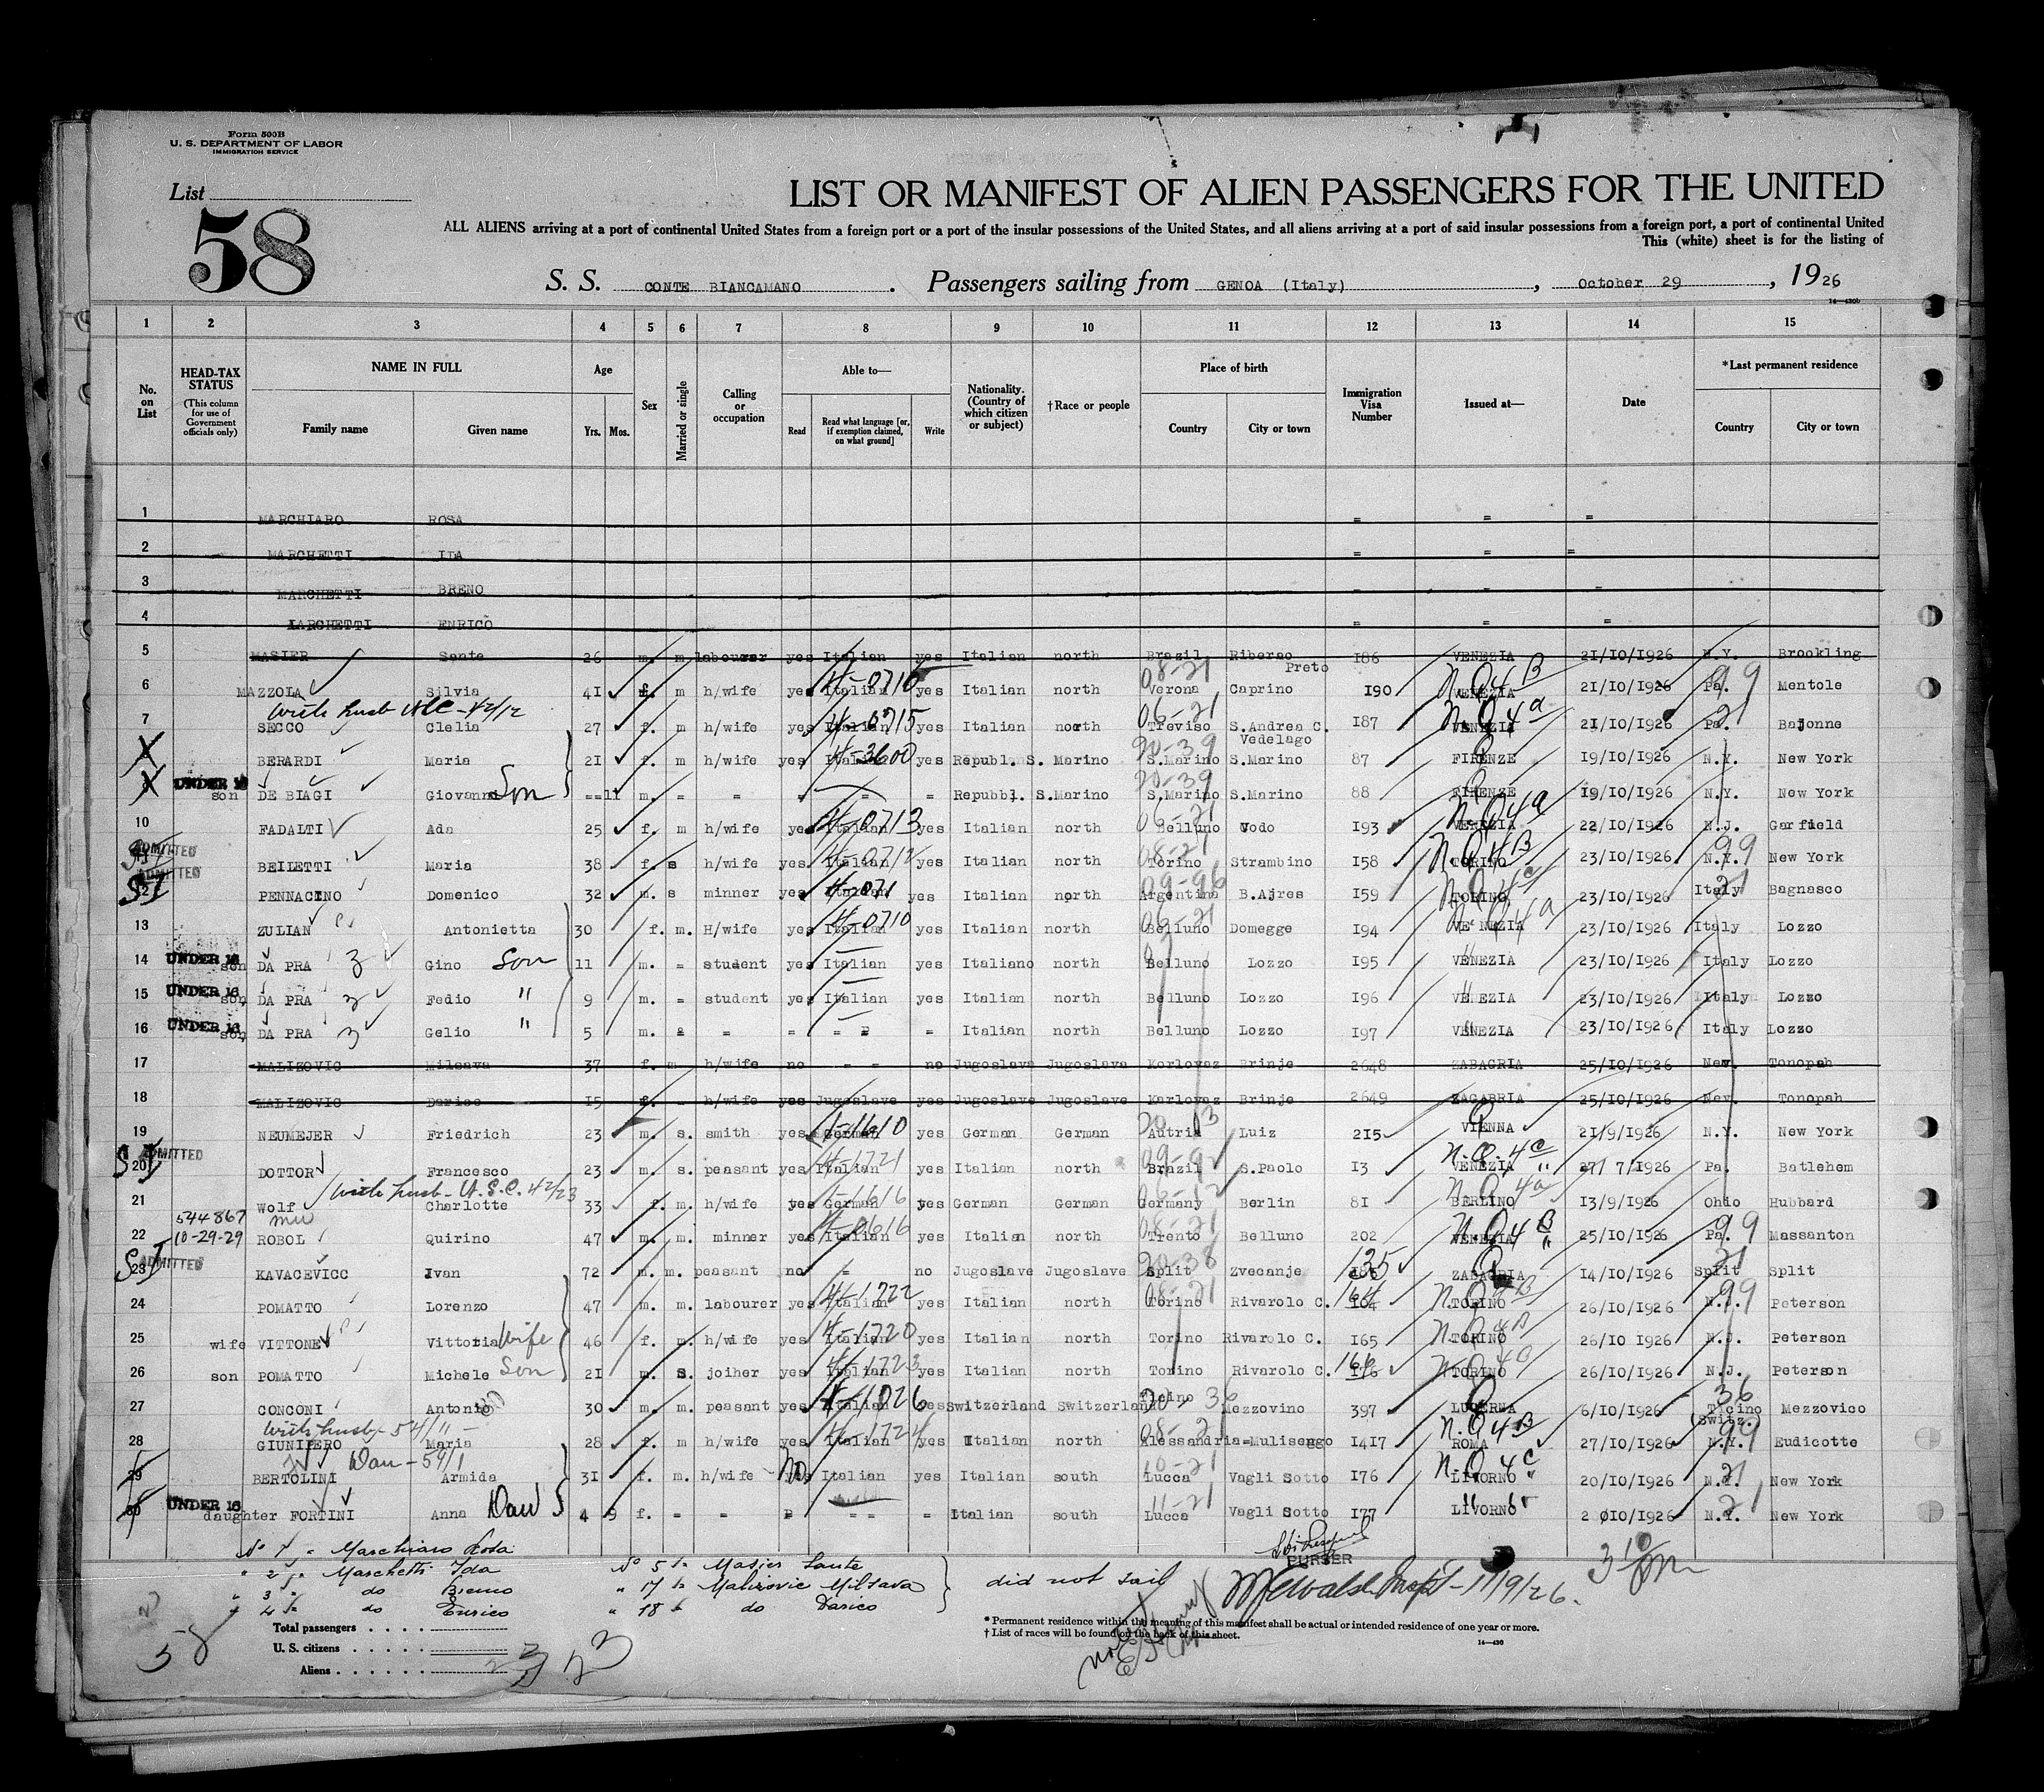 Form 500B
U. S. DEPARTMENT OF LABOR
IMMIGRATION SERVICE
List
58
LIST OR MANIFEST OF ALIEN PASSENGERS FOR THE UNITED
ALL ALIENS arriving at a port of continental United States from a foreign port or a port of the insular possessions of the United States, and all aliens arriving at a port of said insular possessions from a foreign port, a port of continental United
This (white) sheet is for the listing of
S. S. CONTE BIANCAMANO . Passengers sailing from GENOA (Italy) , October 29 , 1926
14—430b
1 2 3 4 5 6 7 8 9 10 11 12 13 14 15
No. on List
HEAD-TAX STATUS (This column for use of Government officials only)
NAME IN FULL
Family name
Given name
Age
Yrs.
Mos.
Sex
Married or single
Calling or occupation
Able to—
Read
Read what language [or, if exemption claimed, on what ground]
Write
Nationality. (Country of which citizen or subject)
†Race or people
Place of birth
Country
City or town
Immigration Visa Number
Issued at—
Date
*Last permanent residence
Country
City or town
1 MARCHIARO ROSA = = =
2 MARCHETTI IDA = = =
3 MARCHETTI BRENO -
4 MARCHETTI ENRICO = = =
5 MASIER Sante 26 m. m labourer yes Italian yes Italian north Brazil Riberao Preto 186 VENEZIA 21/10/1926 N.Y. Brookling
6 MAZZOLA Silvia 41 f. m h/wife yes Italian yes Italian north Verona Caprino 190 VENEZIA 21/10/1926 Pa. Mentole
08-21 4-0710 N.Q 4 B 99
With husb
7 SECCO Clelia 27 f. m h/wife yes Italian yes Italian north Treviso S.Andrea C. Vedelago 187 VENEZIA 21/10/1926 Pa. Bajonne
06-21 4-0715 N.Q 4 a 21
8 BERARDI Maria 21 f. m h/wife yes Italian yes Republ. S. Marino S.Marino S.Marino 87 FIRENZE 19/10/1926 N.Y. New York
20-39 4-3600 Q
UNDER 16 son DE BIAGI Giovanni Son ==11 m. = = = = = Repubbl. S.Marino S.Marino S.Marino 88 FIRENZE 19/10/1926 N.Y. New York
20-39 Q
10 FADALTI Ada 25 f. m h/wife yes Italian yes Italian north Belluno Vodo 193 VENEZIA 22/10/1926 N.J. Garfield
06-21 4-0713 N.Q 4a
ADMITTED
11 BEILETTI Maria 38 f. s h/wife yes Italian yes Italian north Torino Strambino 158 TORINO 23/10/1926 N.Y. New York
08-21 4-0712 N.Q 4 B 99
ADMITTED
SI 12 PENNACINO Domenico 32 m. s minner yes Italian yes Italian north Argentina B.Ajres 159 TORINO 23/10/1926 Italy Bagnasco
09-96 4-071 21
13 ZULIAN Antonietta 30 f. m. H/wife yes Italian yes Italian north Belluno Domegge 194 VENEZIA 23/10/1926 Italy Lozzo
06-21 4-0710 N.Q 4 a
14 UNDER 16 son DA PRA 3 Gino Son 11 m. = student yes Italian yes Italiano north Belluno Lozzo 195 VENEZIA 23/10/1926 Italy Lozzo
15 UNDER 16 son, DA PRA 3 Fedio " 9 m. = student yes Italian yes Italian north Belluno Lozzo 196 VENEZIA 23/10/1926 Italy Lozzo
16 UNDER 16 son, DA PRA 3 Gelio " 5 m. = = = = = Italian north Belluno Lozzo 197 VENEZIA 23/10/1926 Italy Lozzo
17 MALIZOVIC Milsava 37 f. m h/wife no - - no Jugoslava Jugoslava Karlovaz Brinje 2648 ZABAGRIA 25/10/1926 Nev. Tonopah
18 MALIZOVIC Darico 15 f. - h/wife yes Jugoslave yes Jugoslave Jugoslave Karlovaz Brinje 2649 ZAGABRIA 25/10/1926 Nev. Tonopah
19 NEUMEJER Friedrich 23 m. s. smith yes German yes German German Autria Luiz 215 VIENNA 21/9/1926 N.Y. New York
1-1610 Q
ADMITTED
SI 20 DOTTOR Francesco 23 m. s. peasant yes Italian yes Italian north Brazil S.Paolo 13 VENEZIA 27/ 7/1926 Pa. Batlehem
4-1721 N.Q. 4 c
With husb- U.S.C. 42/23
21 Wolf Charlotte 33 f. m. h/wife yes German yes German German Germany Berlin 81 BERLINO 13/9/1926 Ohio Hubbard
1-1616 N Q 4a
544867
10-29-29
22 ROBOL Quirino 47 m. m. minner yes Italian yes Italian north Trento Belluno 202 VENEZIA 25/10/1926 Pa. Massanton
08-21 4-0616 N.Q 4 B 99
ADMITTED
SI 23 KAVACEVICC Ivan 72 m. m. peasant no - no Jugoslave Jugoslave Split Zvecanje 135 ZABAGRIA 14/10/1926 Split Split
20-38 Q 21
24 POMATTO Lorenzo 47 m. m. labourer yes Italian yes Italian north Torino Rivarolo C. 164 TORINO 26/10/1926 N.J. Peterson
08-21 4-1722 99
25 wife VITTONE Vittoria Wife 46 f. m. h/wife yes Italian yes Italian north Torino Rivarolo C. 165 TORINO 26/10 1926 N.J. Peterson
4-1720
26 son POMATTO Michele Son 21 m. S. joiher yes Italian yes Italian north Torino Rivarolo C. 166 TORINO 26/10/1926 N.J. Peterson
4-1723
27 CONCONI Antonio 30 m. m. peasant yes Italian yes Switzerland Switzerland Ticino Mezzovino 397 LUCERNA 6/10/1926 Ticino Switz. Mezzovico
4-1026 36 Q 36
With husb- 54/11 -
28 GIUNIPERO Maria 28 f. m h/wife yes Italian yes Italian north Alessandria-Mulisengo 1417 ROMA 27/10/1926 N.Y. Eudicotte
08-21 4-1724 N.Q 4 B 99
Dau - 59/1
29 BERTOLINI Armida 31 f. m. h/wife yes no Italian yes Italian south Lucca Vagli Sotto 176 LIVORNO 20/10/1926 N.Y. New York
10-21 N.Q. 4 c 21
30 UNDER 16 daughter FORTINI Anna Dau 4 9 f. = = = = = Italian south Lucca Vagli Sotto 177 LIVORNO 2 010/1926 N.Y. New York
11-21 21
No 1 " Marchiaro Rosa
" 2 " Marchetti Ida
" 3 " do Breno
" 4 " do Enrico
No 5 " Masier Sante
" 17 " Malizovic Milsava
" 18 " do Darico
did not sail
PURSER
11/9/26.
58
Total passengers
U. S. citizens
Aliens
23
* Permanent residence within the meaning of this manifest shall be actual or intended residence of one year or more.
† List of races will be found on the back of this sheet.
14—430